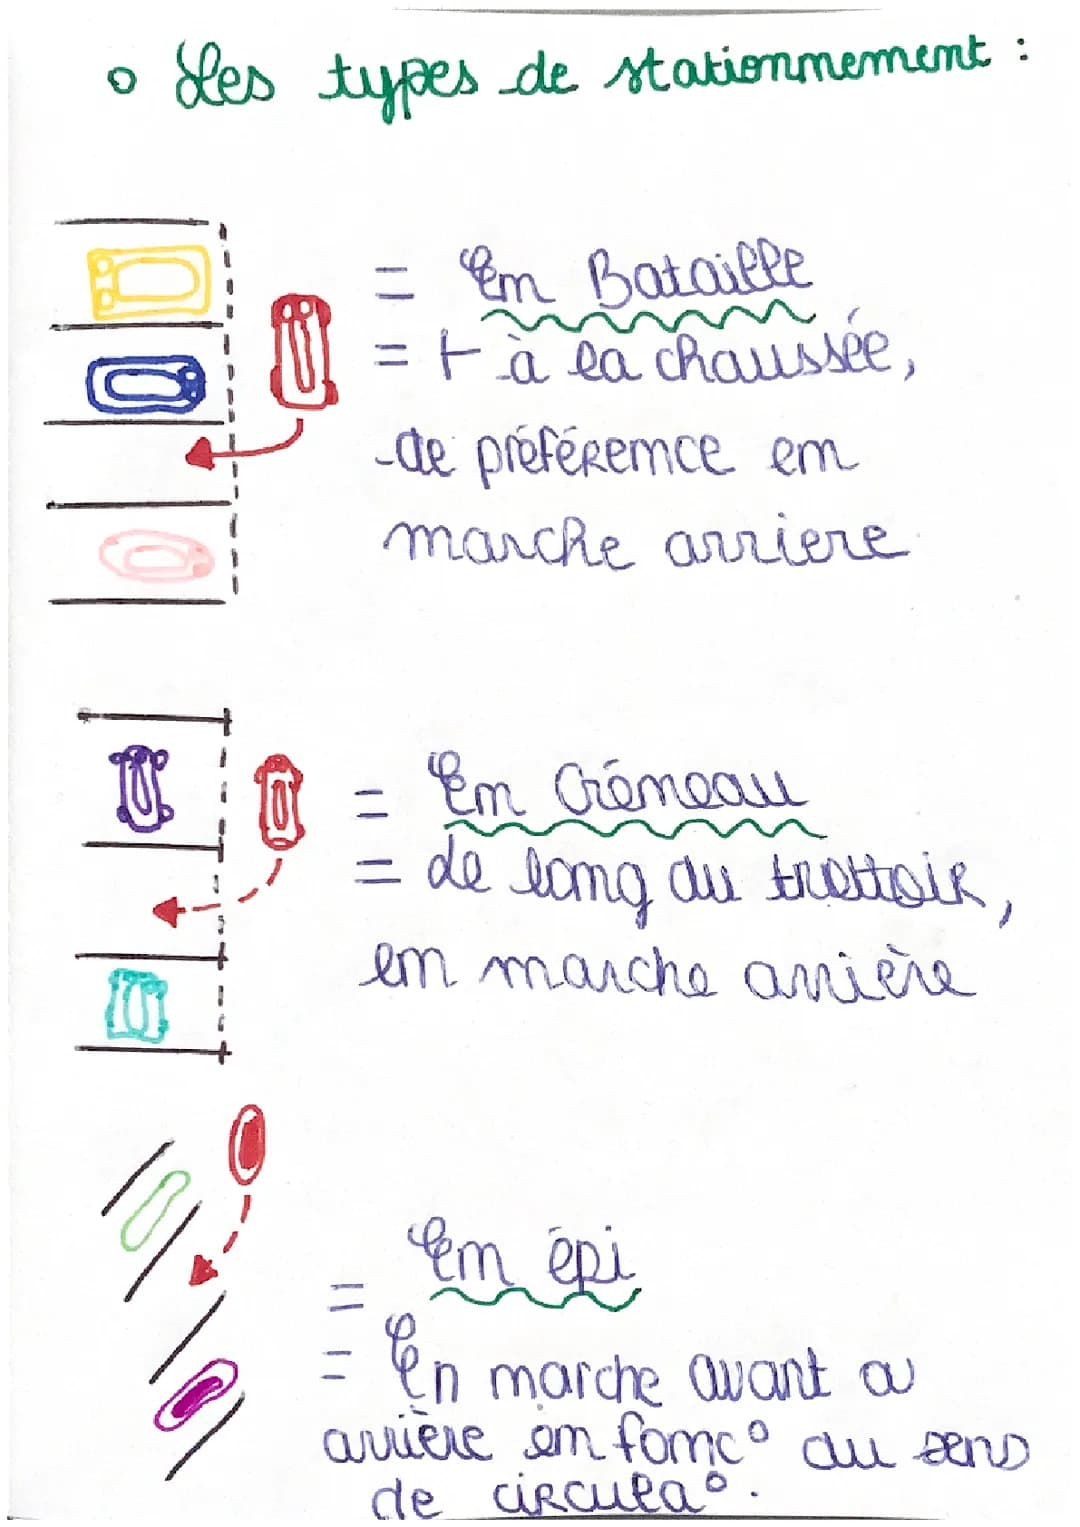 o Les types de stationnement :
= En Bataille
= ⊢ à la chaussée,
de préférence en
marche arriere
= En Créneau
= Le long du trottoir,
en marche arrière
= En épi
= En marche avant ou
arrière en fonc° du sens
de circula°.